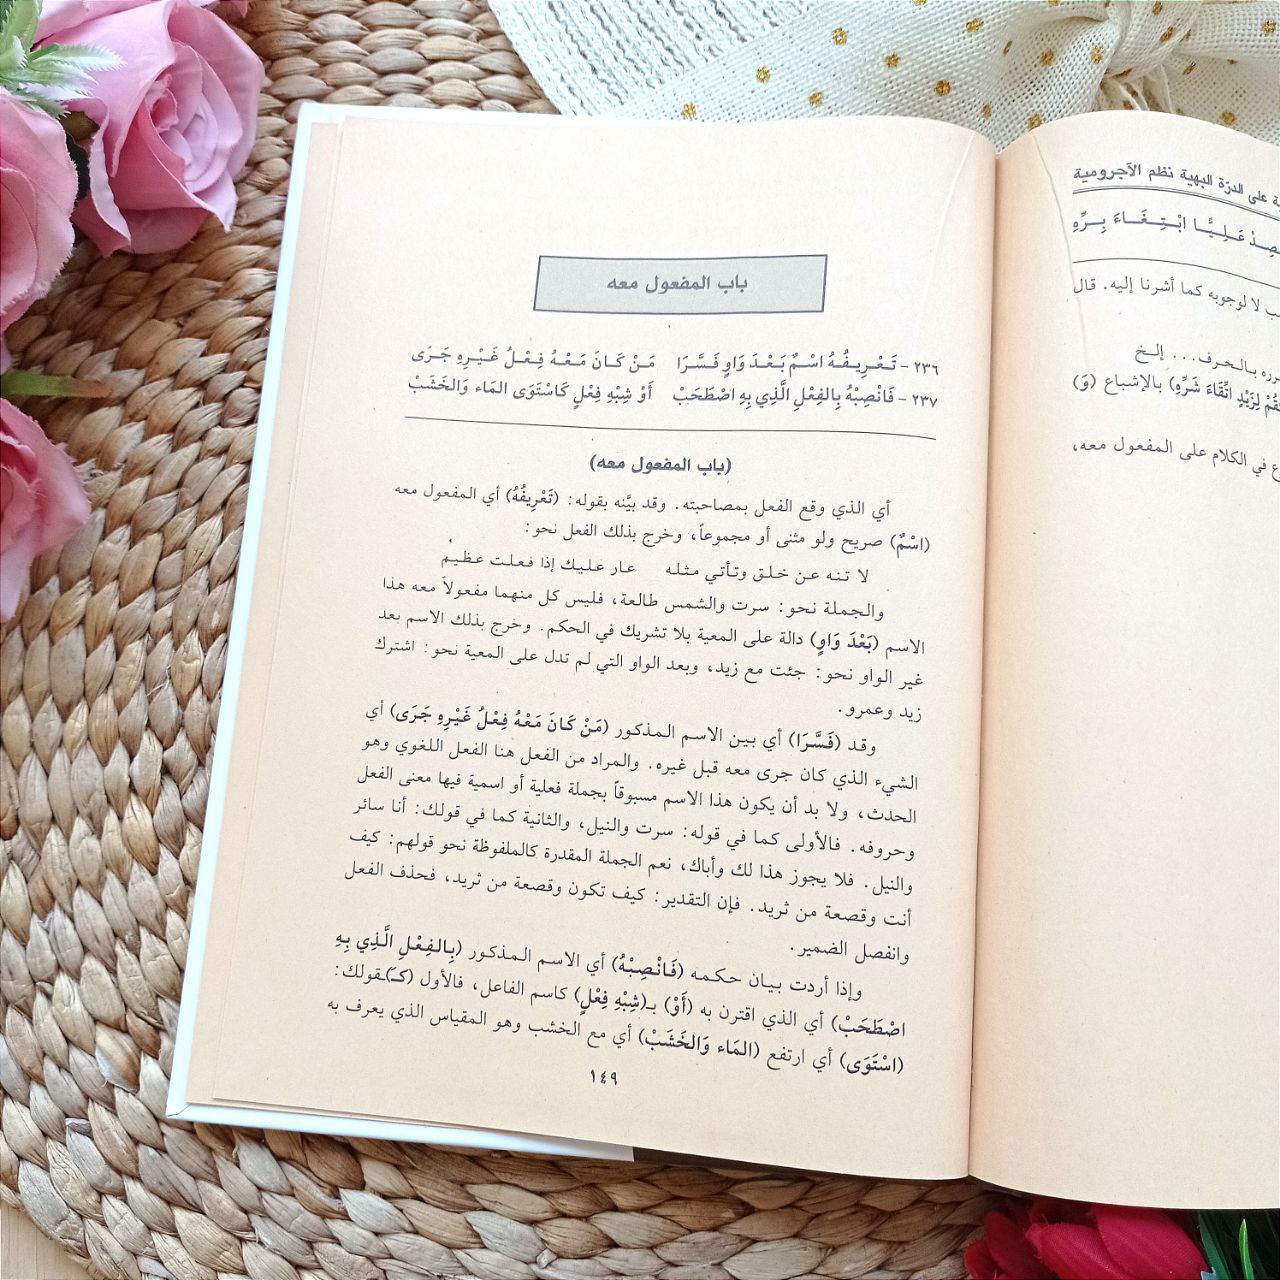 ة على الدرّة البهية نظم الآجرومية
صِدْ عَلِيًّا ابْتِغَاءَ بِرِّهِ
ب لا لوجوبه كما أشرنا إليه. قال
رره بالحرف... إلخ
قُمْ لِزَيْدٍ اتِّقَاءَ شَرِّهِ) بالإشباع (وَ)
ع في الكلام على المفعول معه،
باب المفعول معه
٢٣٦ - تَعْرِيفُهُ اسْمٌ بَعْدَ وَاوٍ فَسَّرَا مَنْ كَانَ مَعْهُ فِعْلُ غَيْرِهِ جَرَى
٢٣٧ - فَانْصِبْهُ بِالفِعْلِ الَّذِي بِهِ اصْطَحَبْ أَوْ شِبْهِ فِعْلٍ كَاسْتَوَى المَاء وَالخَشَبْ
(باب المفعول معه)
أي الذي وقع الفعل بمصاحبته. وقد بيَّنه بقوله: (تَعْرِيفُهُ) أي المفعول معه
(اسْمٌ) صريح ولو مثنى أو مجموعاً، وخرج بذلك الفعل نحو:
لا تنه عن خلق وتأتي مثله عار عليك إذا فعلت عظيم
والجملة نحو: سرت والشمس طالعة، فليس كل منهما مفعولاً معه هذا
الاسم (بَعْدَ وَاوٍ) دالة على المعية بلا تشريك في الحكم. وخرج بذلك الاسم بعد
غير الواو نحو: جئت مع زيد، وبعد الواو التي لم تدل على المعية نحو: اشترك
زيد وعمرو.
وقد (فَسَّرَا) أي بين الاسم المذكور (مَنْ كَانَ مَعْهُ فِعْلُ غَيْرِهِ جَرَى) أي
الشيء الذي كان جرى معه قبل غيره. والمراد من الفعل هنا الفعل اللغوي وهو
الحدث، ولا بد أن يكون هذا الاسم مسبوقاً بجملة فعلية أو اسمية فيها معنى الفعل
وحروفه. فالأولى كما في قوله: سرت والنيل، والثانية كما في قولك: أنا سائر
والنيل. فلا يجوز هذا لك وأباك، نعم الجملة المقدرة كالملفوظة نحو قولهم: كيف
أنت وقصعة من ثريد. فإن التقدير: كيف تكون وقصعة من ثريد، فحذف الفعل
وانفصل الضمير.
وإذا أردت بيان حكمه (فَانْصِبْهُ) أي الاسم المذكور (بِالفِعْلِ الَّذِي بِهِ
اصْطَحَبْ) أي الذي اقترن به (أَوْ) بـ(شِبْهِ فِعْلٍ) كاسم الفاعل، فالأول (كَـ)ـقولك:
(اسْتَوَى) أي ارتفع (المَاء وَالخَشَبْ) أي مع الخشب وهو المقياس الذي يعرف به
١٤٩